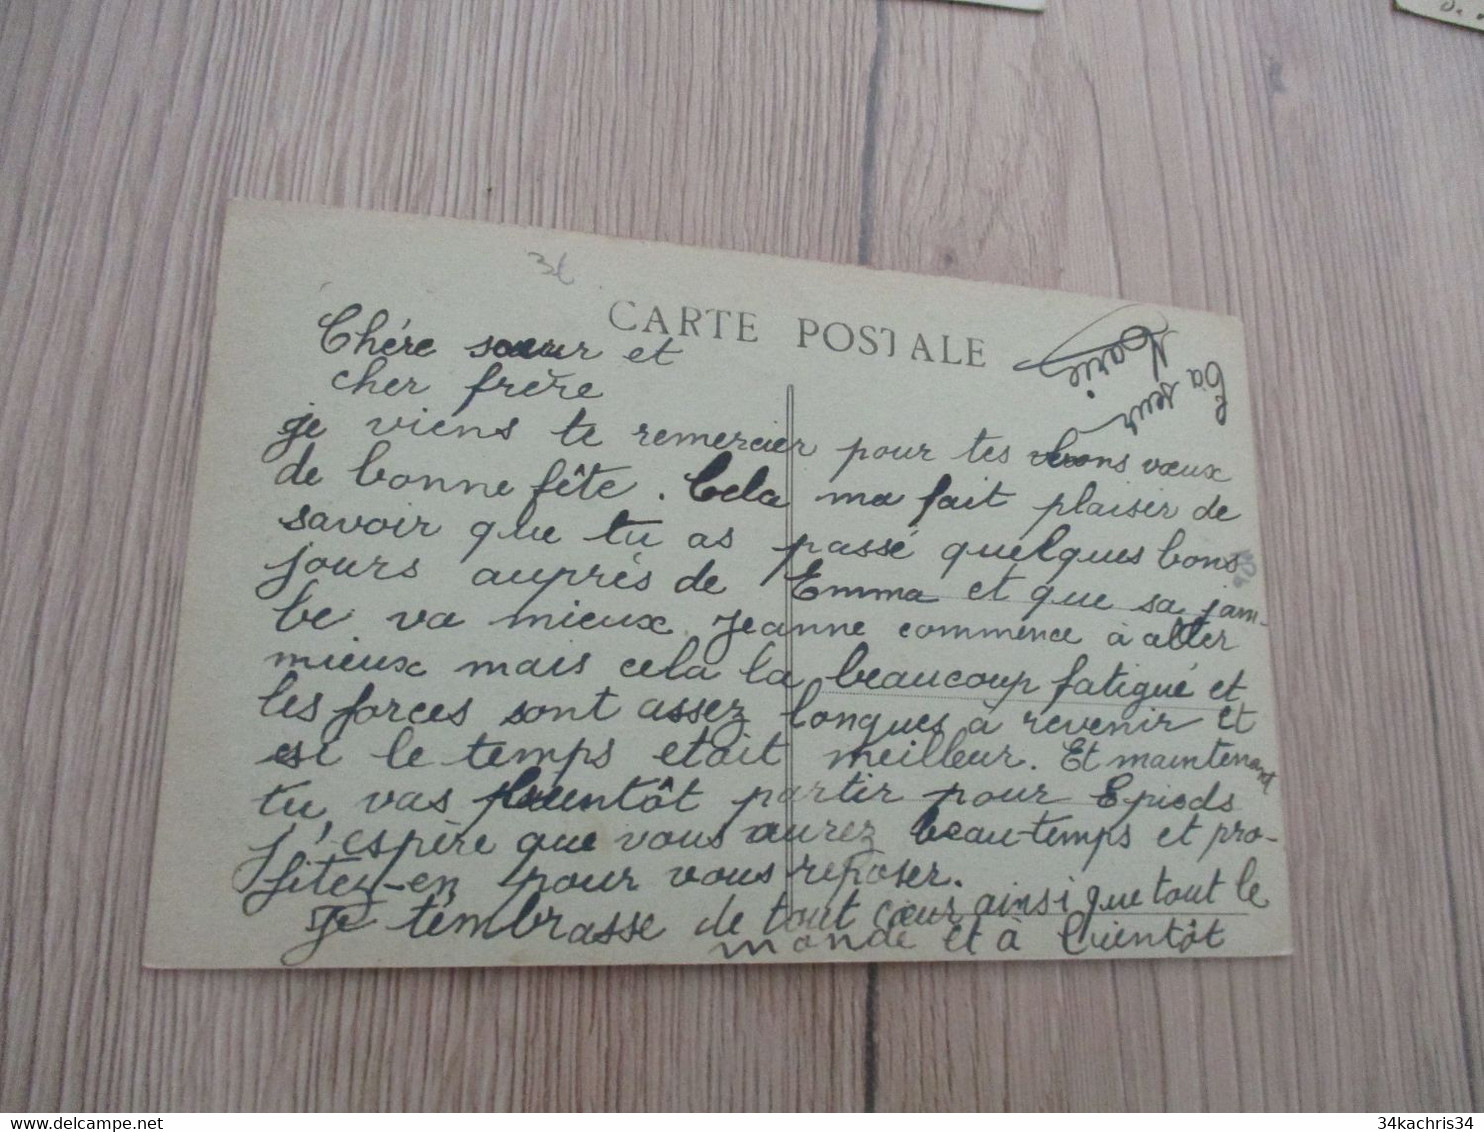 CARTE POSTALE
Chére soeur et
cher frère
je viens te remercier pour tes bons vœux
de bonne fête. Cela ma fait plaisir de
savoir que tu as passé quelques bons
jours auprès de Emma et que sa jam-
be va mieux. Jeanne commence à aller
mieux mais cela la beaucoup fatigué et
les forces sont assez longues à revenir et
si le temps etait meilleur. Et maintenant
tu vas bientôt partir pour Epieds
j'espère que vous aurez beau-temps et pro-
fitez-en pour vous reposer.
Je t'embrasse de tout cœur ainsi que tout le
monde et à bientôt
Ta seur
Marie
34kachris34